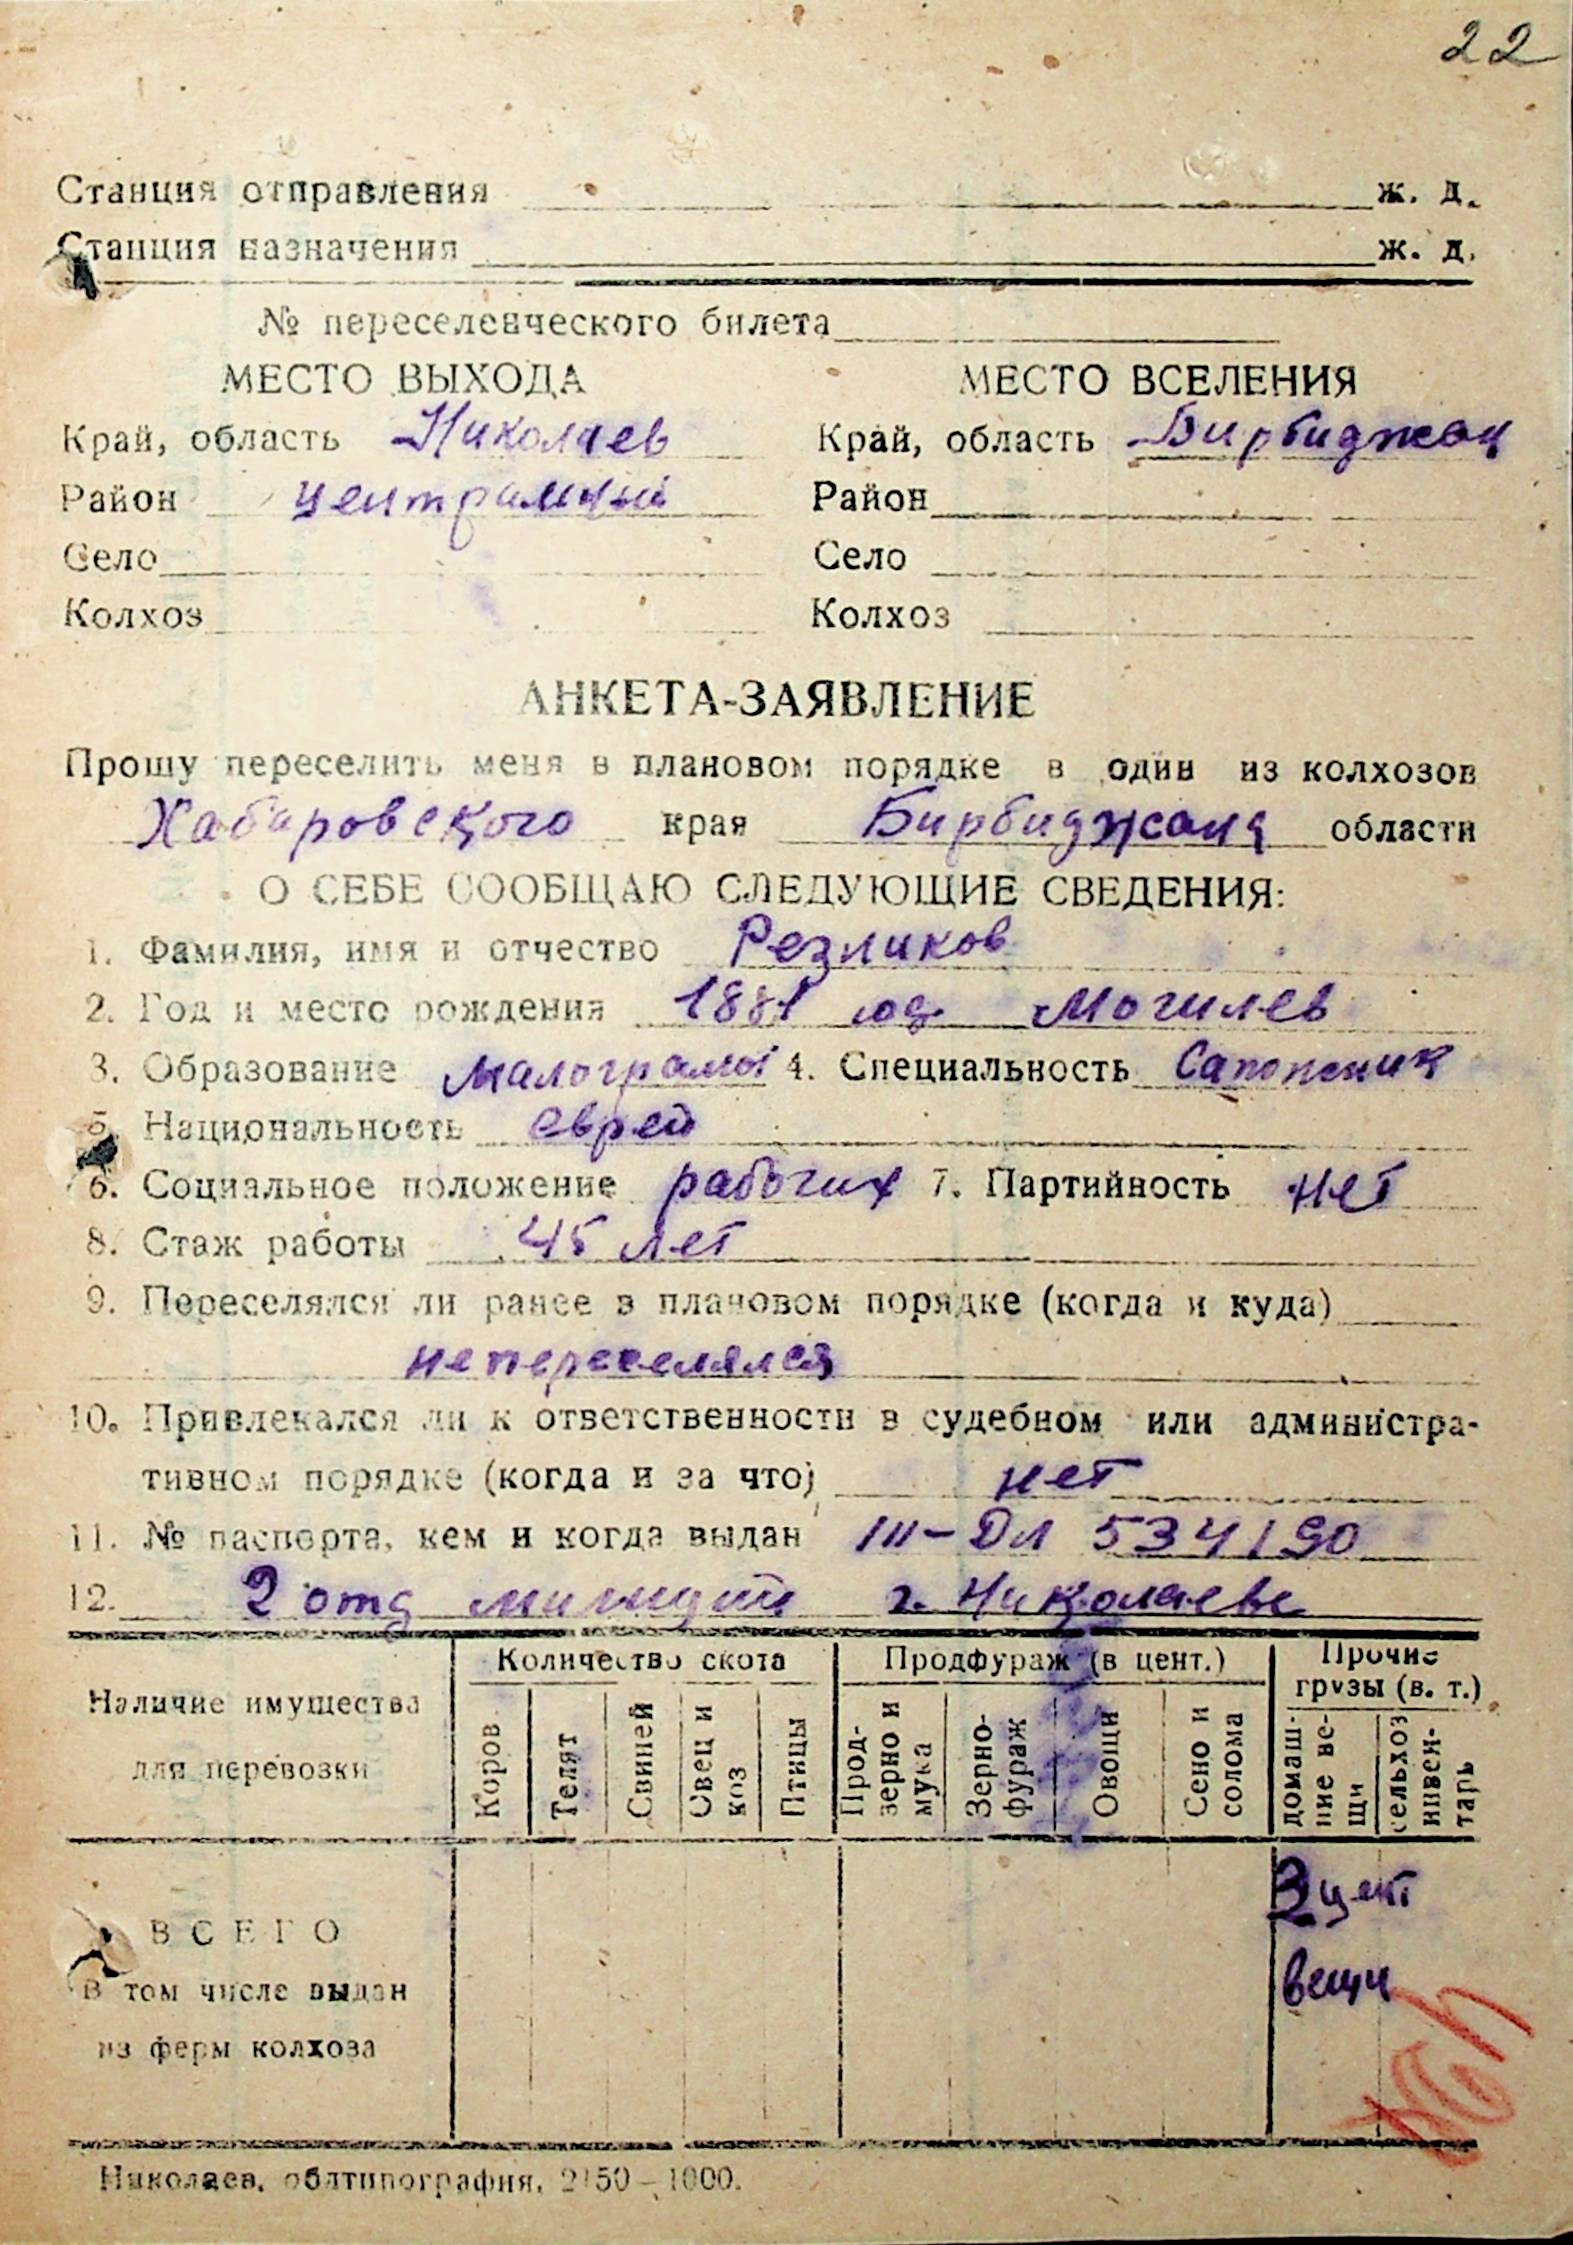 22
Станция отправления ж. д.
Станция назначения ж. д.
№ переселенческого билета
МЕСТО ВЫХОДА МЕСТО ВСЕЛЕНИЯ
Край, область Николаев Край, область Бирбиджан
Район централный Район
Село Село
Колхоз Колхоз
АНКЕТА-ЗАЯВЛЕНИЕ
Прошу переселить меня в плановом порядке в один из колхозов
Хабаровского края Бирбиджана области
О СЕБЕ СООБЩАЮ СЛЕДУЮЩИЕ СВЕДЕНИЯ:
1. Фамилия, имя и отчество Резников
2. Год и место рождения 1881 год Могилев
3. Образование малограмот 4. Специальность Сапожник
5. Национальность еврей
6. Социальное положение рабочих 7. Партийность нет
8. Стаж работы 45 лет
9. Переселялся ли ранее в плановом порядке (когда и куда)
непереселялся
10. Привлекался ли к ответственности в судебном или администра-
тивном порядке (когда и за что) нет
11. № паспорта, кем и когда выдан III-ДЛ 534190
12. 2 отд милиции г. Николаеве
Наличие имущества для перевозки
Количество скота Продфураж (в цент.) Прочие грузы (в. т.)
Коров Телят Свиней Овец и коз Птицы Прод-зерно и мука Зерно-фураж Овощи Сено и солома домаш-ние ве-щи сельхоз инвен-тарь
ВСЕГО 3 цент
в том числе выдан вещи
из ферм колхоза
Николаев, облтипография, 2150—1000.